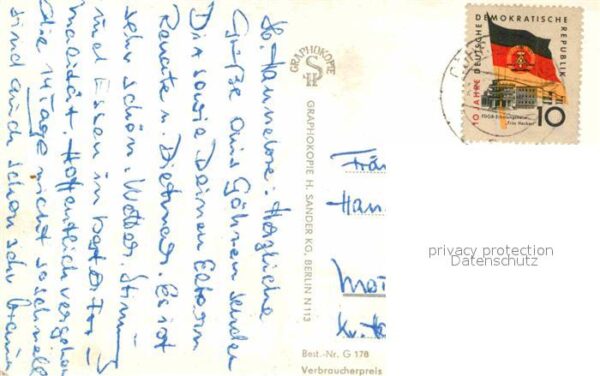 Lb. Hannelore! Herzliche
Grüße aus Göhren senden
Dir sowie Deinen Eltern
Renate u. Dietmar. Es ist
sehr schön. Wetter, Stimmung
und Essen in bester For-
malität. Hoffentlich vergehen
die 14 Tage nicht so schnell
sind auch schon sehr braun
GRAPHOKOPIE
H S
GRAPHOKOPIE H. SANDER KG, BERLIN N 113
10 JAHRE DEUTSCHE DEMOKRATISCHE REPUBLIK
FDGB-Erholungsheim
"Fritz Heckert"
10
Frä
Han
privacy protection
Datenschutz
Best.-Nr. G 178
Verbraucherpreis